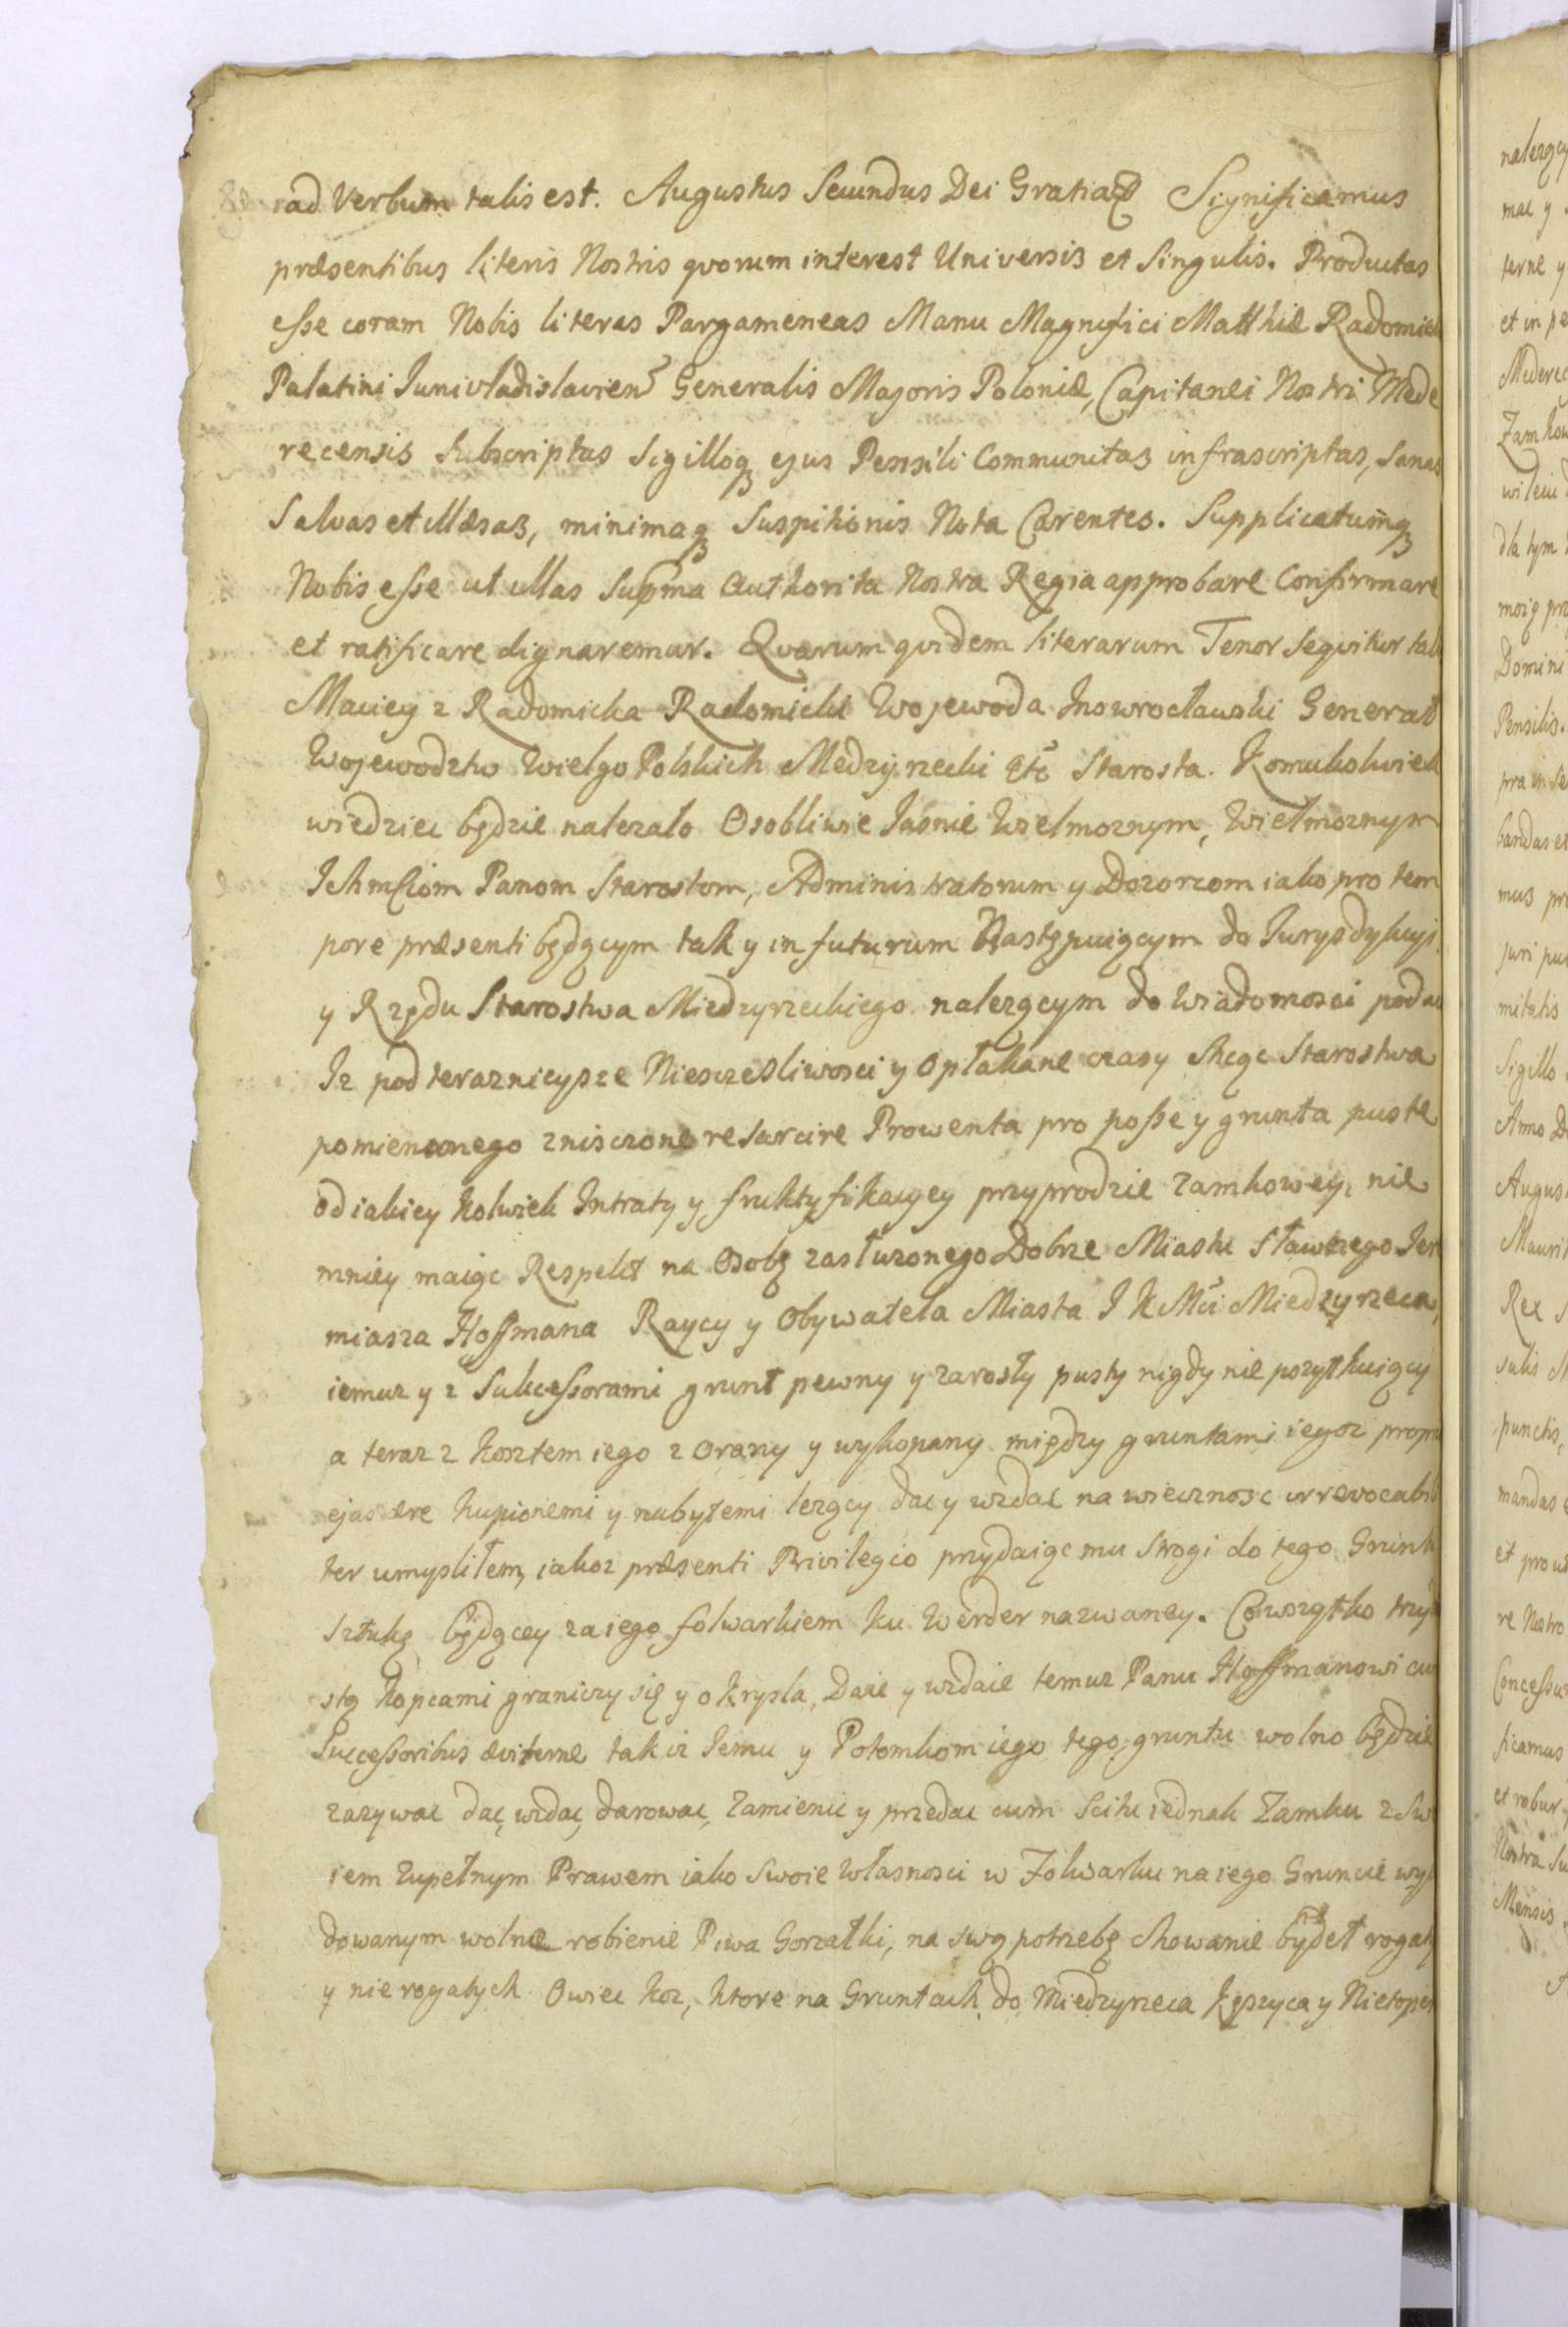 ad Verbum talis est. Augustus Secundus Dei Gratia Significamus
præsentibus literis Nostris qvorum interest Universis et Singulis. Productas
esse coram Nobis literas Pargameneas Manu Magnifici Matthiæ Radomic
Palatini Junivladislavien Generalis Majoris Poloniæ, Capitanei Nostri Mede
recensis Subscriptas Sigilloq ejus Pensili Communitas infrascriptas, Sanas
Salvas et illæsas, minimaq Suspitionis Nota Carentes. Supplicatumq
Nobis esse ut illas Supma Authorita Nostra Regia approbare Confirmare
et ratificare dignaremur. Qvarum qvidem literarum Tenor seqvitur tal
Maciey z Radomicka Radomicki Wojewoda Inowrocławski Generał
Wojewodztw WielgoPolskich Medzyrzecki etc Starosta. Komukolwiek
wiedziec będzie nalezało Osobliwie Jasnie Wielmoznym, Wielmoznym
Ichmsciom Panom Starostom, Administratorum y Dozorcom iako pro tem
pore præsenti będącym tak y in futurum Następuiącym do Jurysdykcyi
y Rządu Starostwa Miedzyrzeckiego nalezącym do Wiadomosci podac
Iz pod teraznieysze Niesczesliwosci y Opłakane czasy Chcąc Starostwa
pomienionego zniszczone resarcire Prowenta pro posse y grunta puste
od iakiey kolwiek Intraty y fruktyfikacyey przyprodzie zamkowey, nie
mniey maiąc Respekt na Osobę zasłuzonego Dobrze Miastu Sławnego Jer
miasza Hoffmana Raycy y Obywatela Miasta J K Mci Miedzyrzeca,
iemuz y z Sukcessorami grunt pewny y zarosły pusty nigdy nie pozytkuiący
a teraz z kosztem iego zorany y wykopany między gruntami iegoz propri
ejas ære kupionemi y nabytemi lezący dac y wzdac na wiecznosc irrevocabili
ter umysliłem, iakoz præsenti Privilegio przydaiąc mu Srogi do tego Gruntu
sztukę będącey za iego folwarkiem ku Werder nazwaney. Co wszytko trzy
stą kopcami graniczy się y okrysla, Daie y wzdaie temuz Panu Hoffmanowi cum
Successoribus æviterne tak iz Jemu y Potomkom iego tego gruntu wolno będzie
zazywac dac, wzdac, darowac, zamienic y przedac cum Scitu iednak Zamku z Sw
iem zupełnym Prawem iako Swoie Własnosci w Folwarku na iego Gruncie wy
dowanym wolne robienie Piwa Gorzałki, na swą potrzebę Chowanie bydeł rogaty
y nie rogatych Owiec koz, ktore na Gruntach do Miedzyrzeca Kęszyca y Nietoper